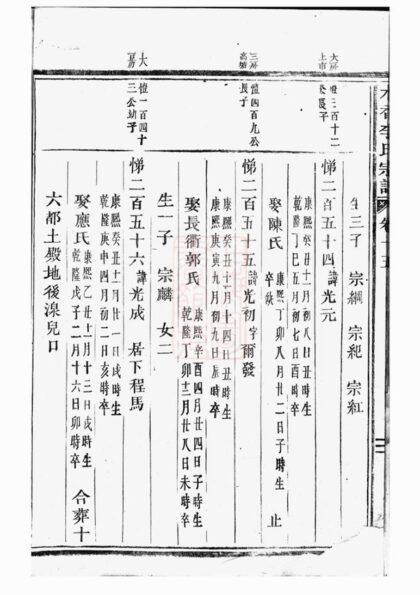 李氏宗譜 卷十五
生三子 宗綱 宗紀 宗紅
大房上市
三百十二
悌二百五十四 諱光元
康熙癸丑十一月初八日丑時生
乾隆己巳五月初七日酉時卒
娶陳氏 康熙丁卯八月廿二日子時生 卒缺 止
三房
愷四百九公長子
悌二百五十五 諱光初字爾發
康熙癸丑十月十四日丑時生
康熙庚寅九月初九日辰時卒
娶長衢郭氏 康熙辛酉四月廿四日子時生 乾隆丁卯十二月廿八日未時卒
生一子 宗麟 女二
大房
愷一百四十三公幼子
悌二百五十六 諱光成 居下程馬
康熙癸丑十一月廿一日戌時生
乾隆庚申四月初二日亥時卒
娶應氏 康熙乙丑十二月十三日戌時生 乾隆戊子二月十六日卯時卒 合葬十
六都土殿地後湶兒口